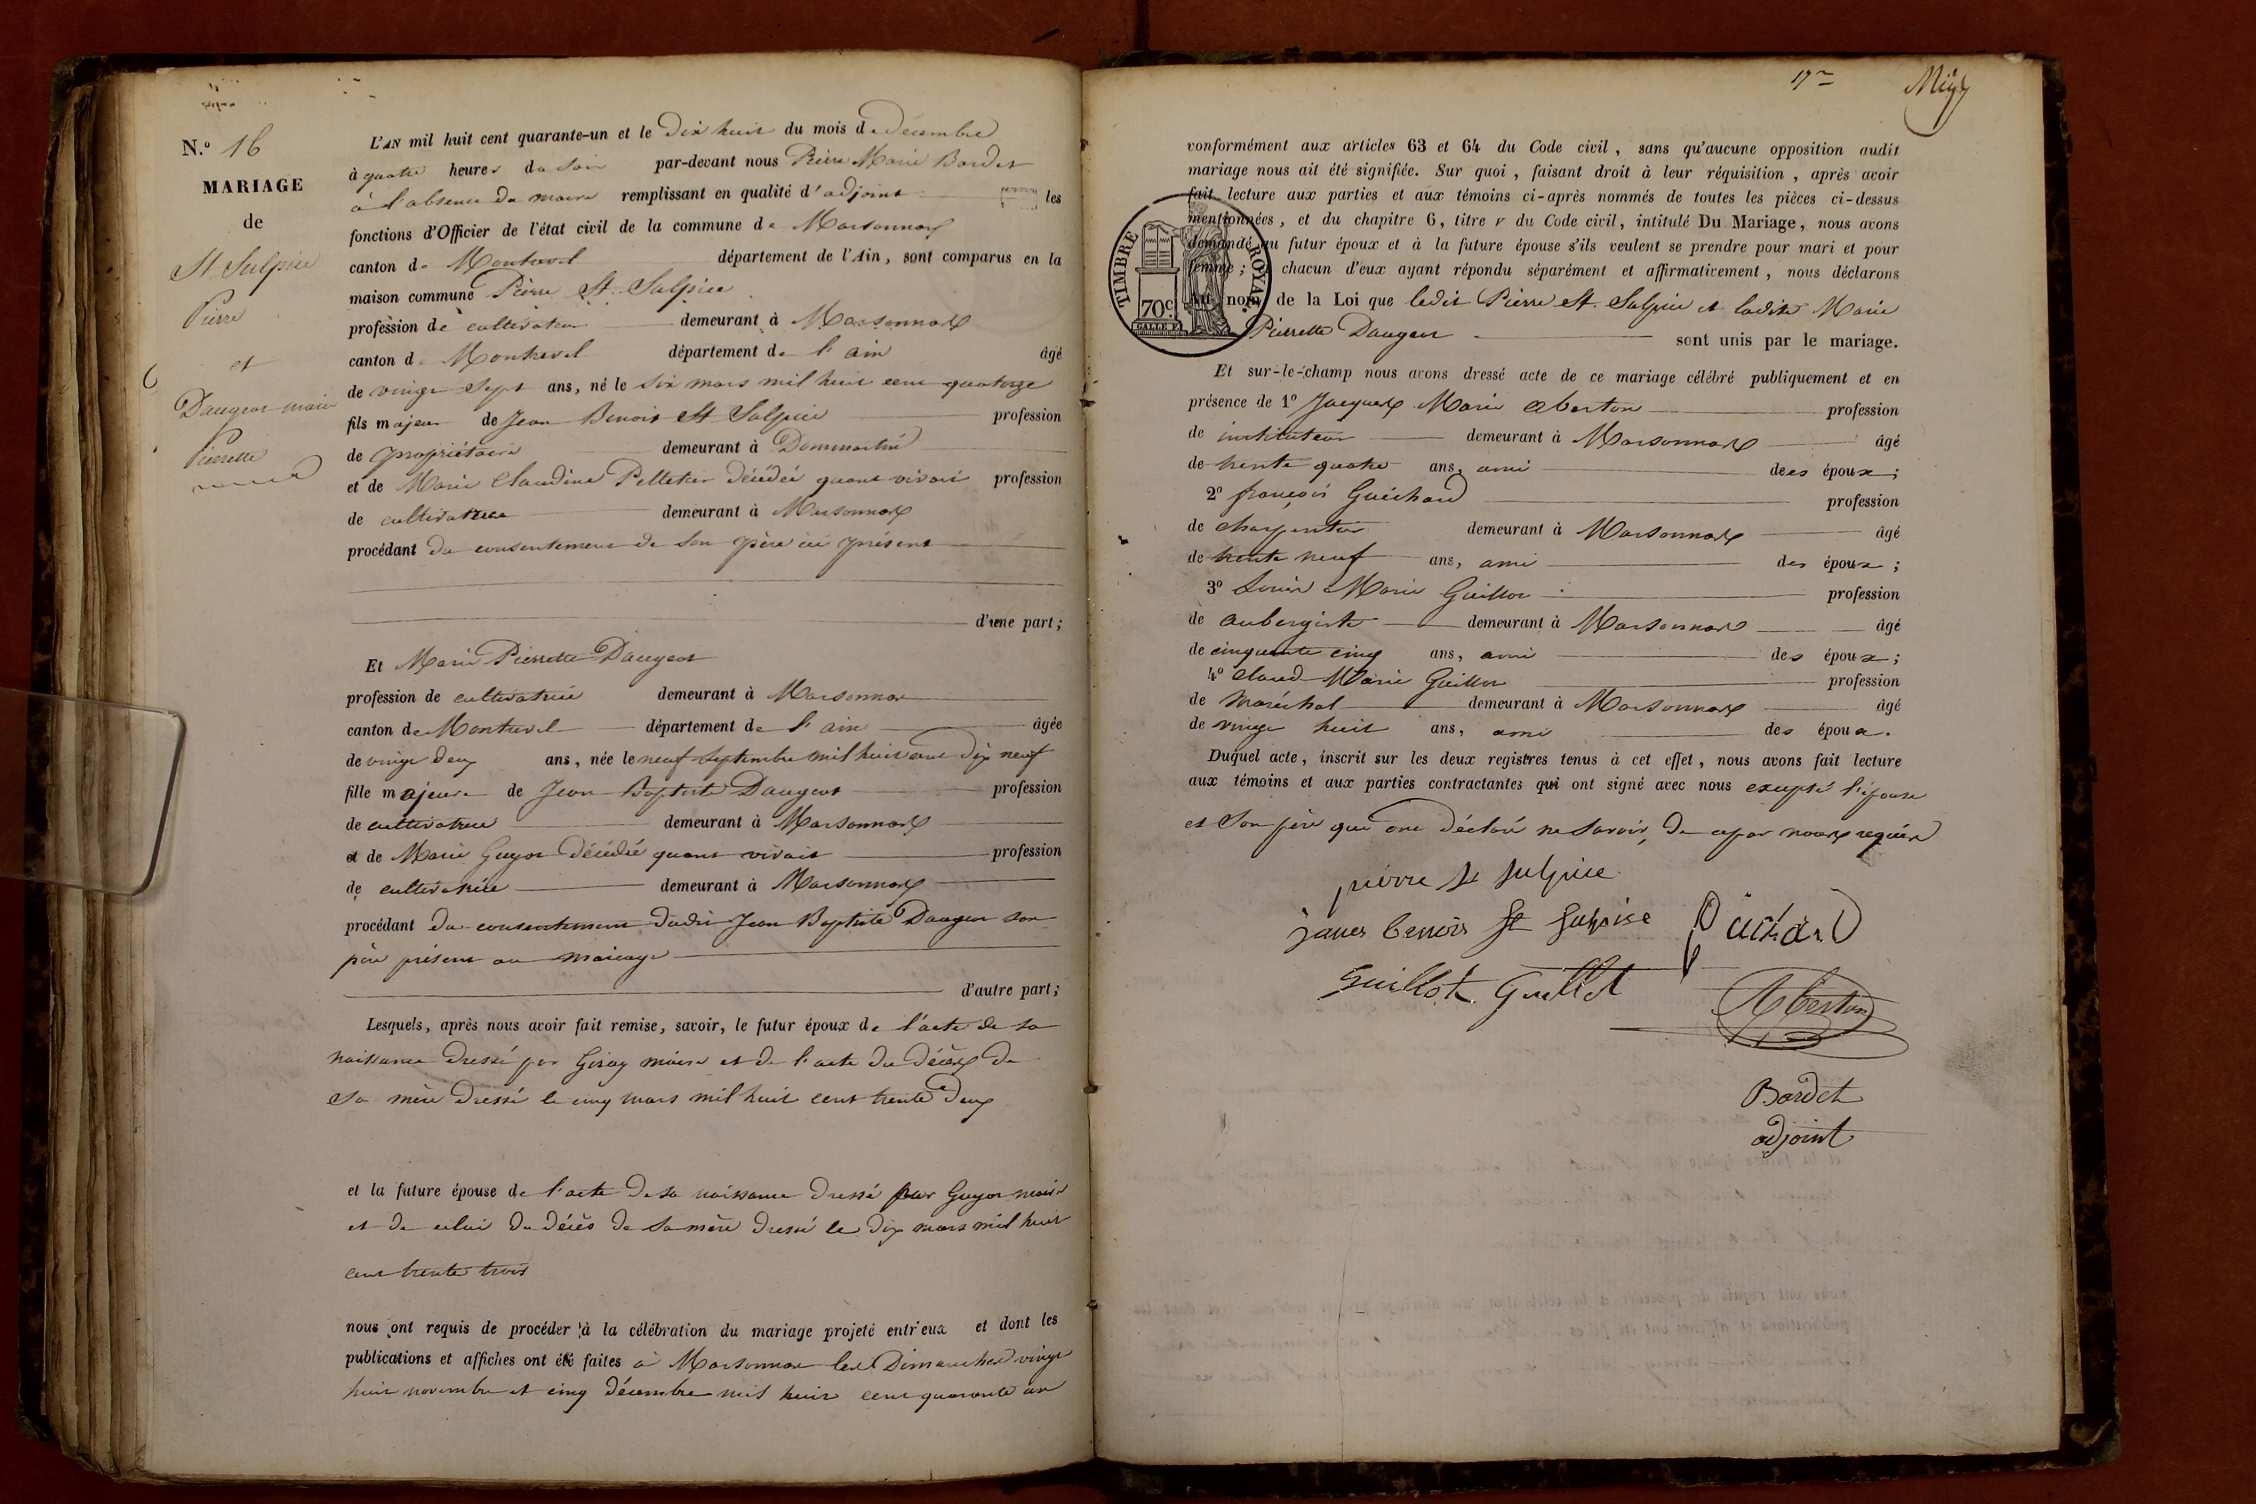 N.o 16
MARIAGE
de
St Sulpice
Pierre
et
Daugeot marie
Pierrette
L'AN mil huit cent quarante-un et le dix huit du mois de décembre
à quatre heures du soir par-devant nous Pierre Marie Bordet
à l'absence du maire remplissant en qualité d'adjoint les
fonctions d'Officier de l'état civil de la commune de Marsonnas
canton de Montrevel département de l'Ain, sont comparus en la
maison commune Pierre St Sulpice
profession de cultivateur demeurant à Marsonnas
canton de Montrevel département de l'ain âgé
de vingt sept ans, né le six mars mil huit cent quatorze
fils majeur de Jean Benoit St Sulpice profession
de propriétaire demeurant à Dommartin
et de Marie Claudine Pelletier décédée quant vivait profession
de cultivatrice demeurant à Marsonnas
procédant du consentement de son père ici présent
d'une part;
Et Marie Pierrette Daugeot
profession de cultivatrice demeurant à Marsonnas
canton de Montrevel département de l'ain âgée
de vingt deux ans, née le neuf septembre mil huit cent dix neuf
fille majeure de Jean Baptiste Daugeot profession
de cultivatrice demeurant à Marsonnas
et de Marie Guyot décédée quant vivait profession
de cultivatrice demeurant à Marsonnas
procédant du consentement dudit Jean Baptiste Daugeot son
père présent au mariage
d'autre part;
Lesquels, après nous avoir fait remise, savoir, le futur époux de l'acte de sa
naissance dressé par Giroy maire et de l'acte du décès de
sa mère dressé le cinq mars mil huit cent trente deux
et la future épouse de l'acte de sa naissance dressé par Guyot maire
et de celui du décès de sa mère dressé le dix mars mil huit
cent trente trois
nous ont requis de procéder à la célébration du mariage projeté entr'eux et dont les
publications et affiches ont été faites à Marsonnas les Dimanches vingt
huit novembre et cinq décembre mil huit cent quarante un
17me
conformément aux articles 63 et 64 du Code civil, sans qu'aucune opposition audit
mariage nous ait été signifiée. Sur quoi, faisant droit à leur réquisition, après avoir
fait lecture aux parties et aux témoins ci-après nommés de toutes les pièces ci-dessus
mentionnées, et du chapitre 6, titre v du Code civil, intitulé Du Mariage, nous avons
demandé au futur époux et à la future épouse s'ils veulent se prendre pour mari et pour
femme; chacun d'eux ayant répondu séparément et affirmativement, nous déclarons
Au nom de la Loi que ledit Pierre St Sulpice et ladite Marie
Pierrette Daugeot sont unis par le mariage.
TIMBRE ROYAL
70c
Et sur-le-champ nous avons dressé acte de ce mariage célébré publiquement et en
présence de 1o Jacques Marie Aberton profession
de instituteur demeurant à Marsonnas âgé
de trente quatre ans, ami des époux;
2o françois Guichard profession
de charpentier demeurant à Marsonnas âgé
de trente neuf ans, ami des époux;
3o Louis Marie Guillot profession
de aubergiste demeurant à Marsonnas âgé
de cinquante cinq ans, ami des époux;
4o Claud Marie Guillot profession
de maréchal demeurant à Marsonnas âgé
de vingt huit ans, ami des époux.
Duquel acte, inscrit sur les deux registres tenus à cet effet, nous avons fait lecture
aux témoins et aux parties contractantes qui ont signé avec nous excepté l'épouse
et son père qui ont déclaré ne savoir, de ce par nous requis
pierre st sulpice
benoit st sulpise Guichard
Guillot Guillot
Aberton
Bordet
adjoint